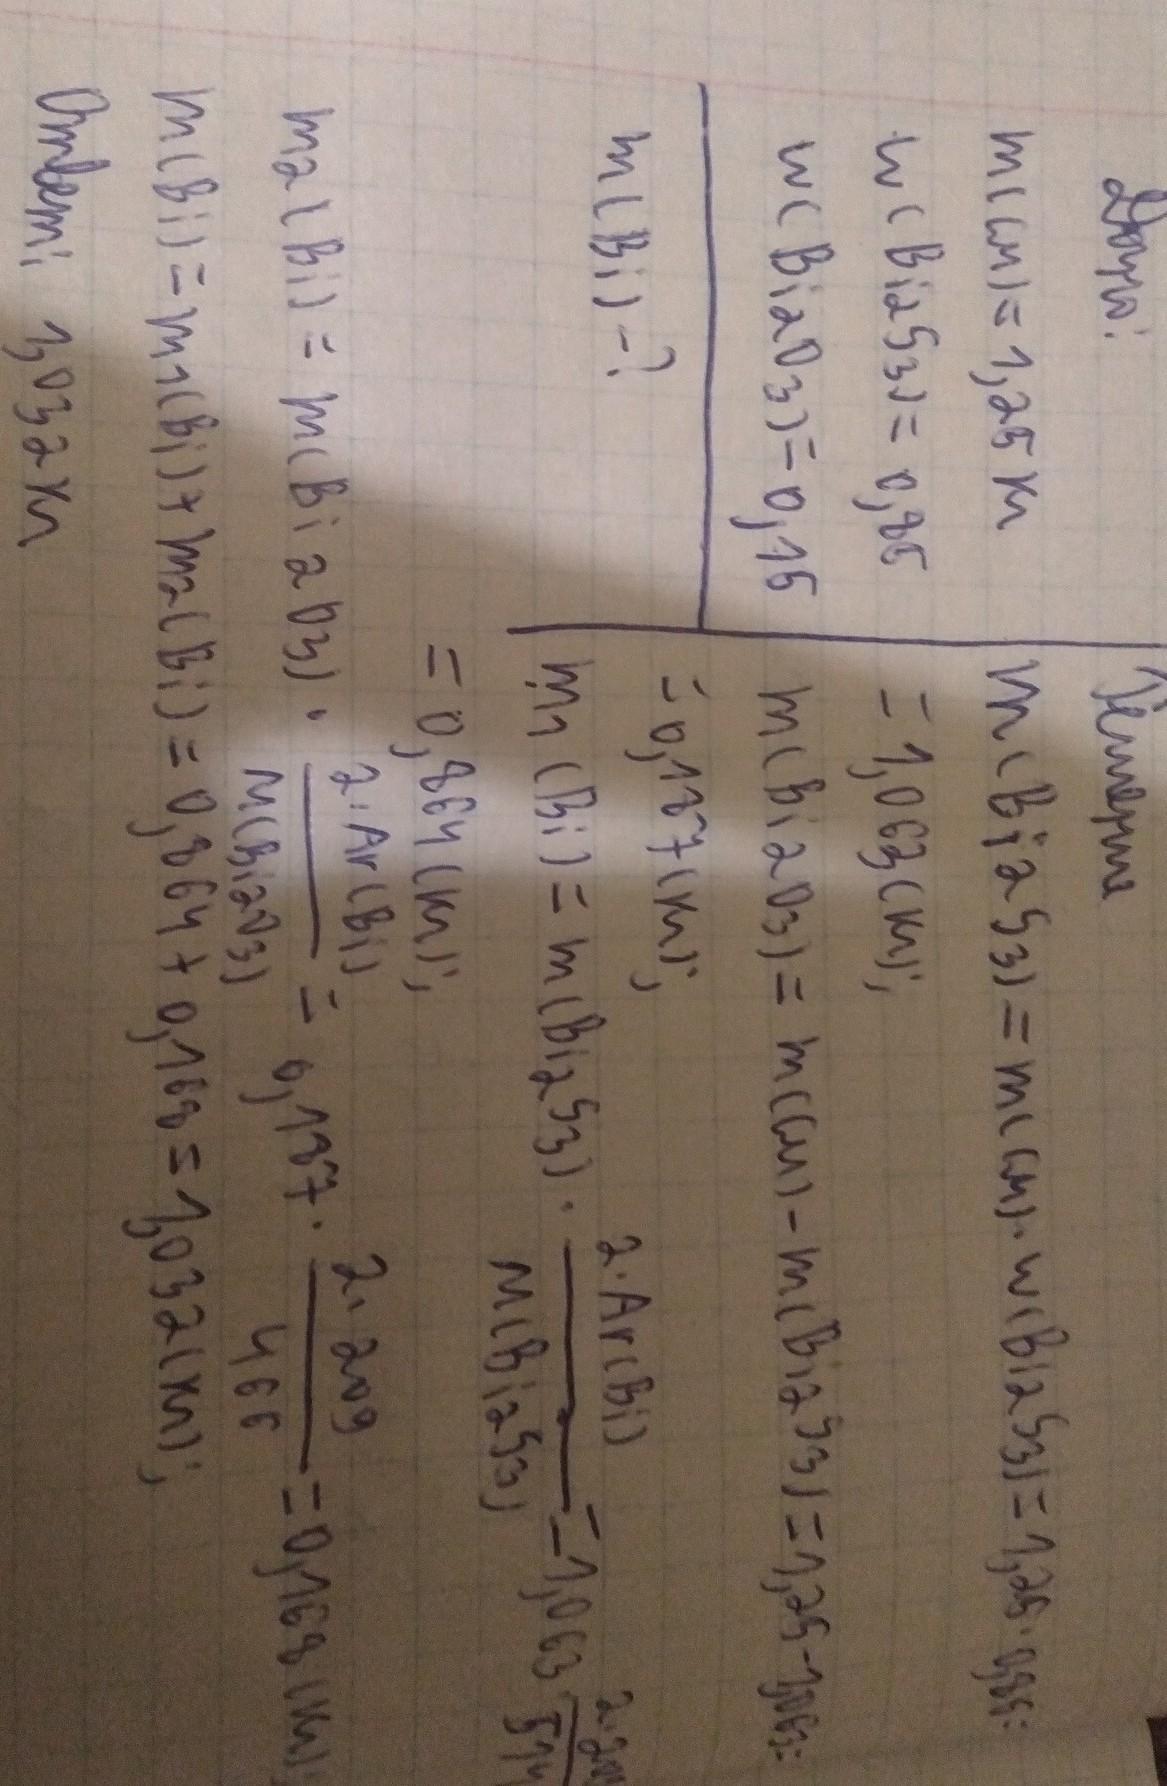 Дано:
m(см) = 1,25 кг
w(Bi2S3) = 0,85
w(Bi2O3) = 0,15
m(Bi) - ?
Решение
m(Bi2S3) = m(см) · w(Bi2S3) = 1,25 · 0,85 =
= 1,063 (кг);
m(Bi2O3) = m(см) - m(Bi2S3) = 1,25 - 1,063 =
= 0,187 (кг);
m1(Bi) = m(Bi2S3) · 2·Ar(Bi) / M(Bi2S3) = 1,063 · 2·209 / 514
= 0,864 (кг);
m2(Bi) = m(Bi2O3) · 2·Ar(Bi) / M(Bi2O3) = 0,187 · 2·209 / 466 = 0,168 (кг);
m(Bi) = m1(Bi) + m2(Bi) = 0,864 + 0,168 = 1,032 (кг);
Ответ: 1,032 кг